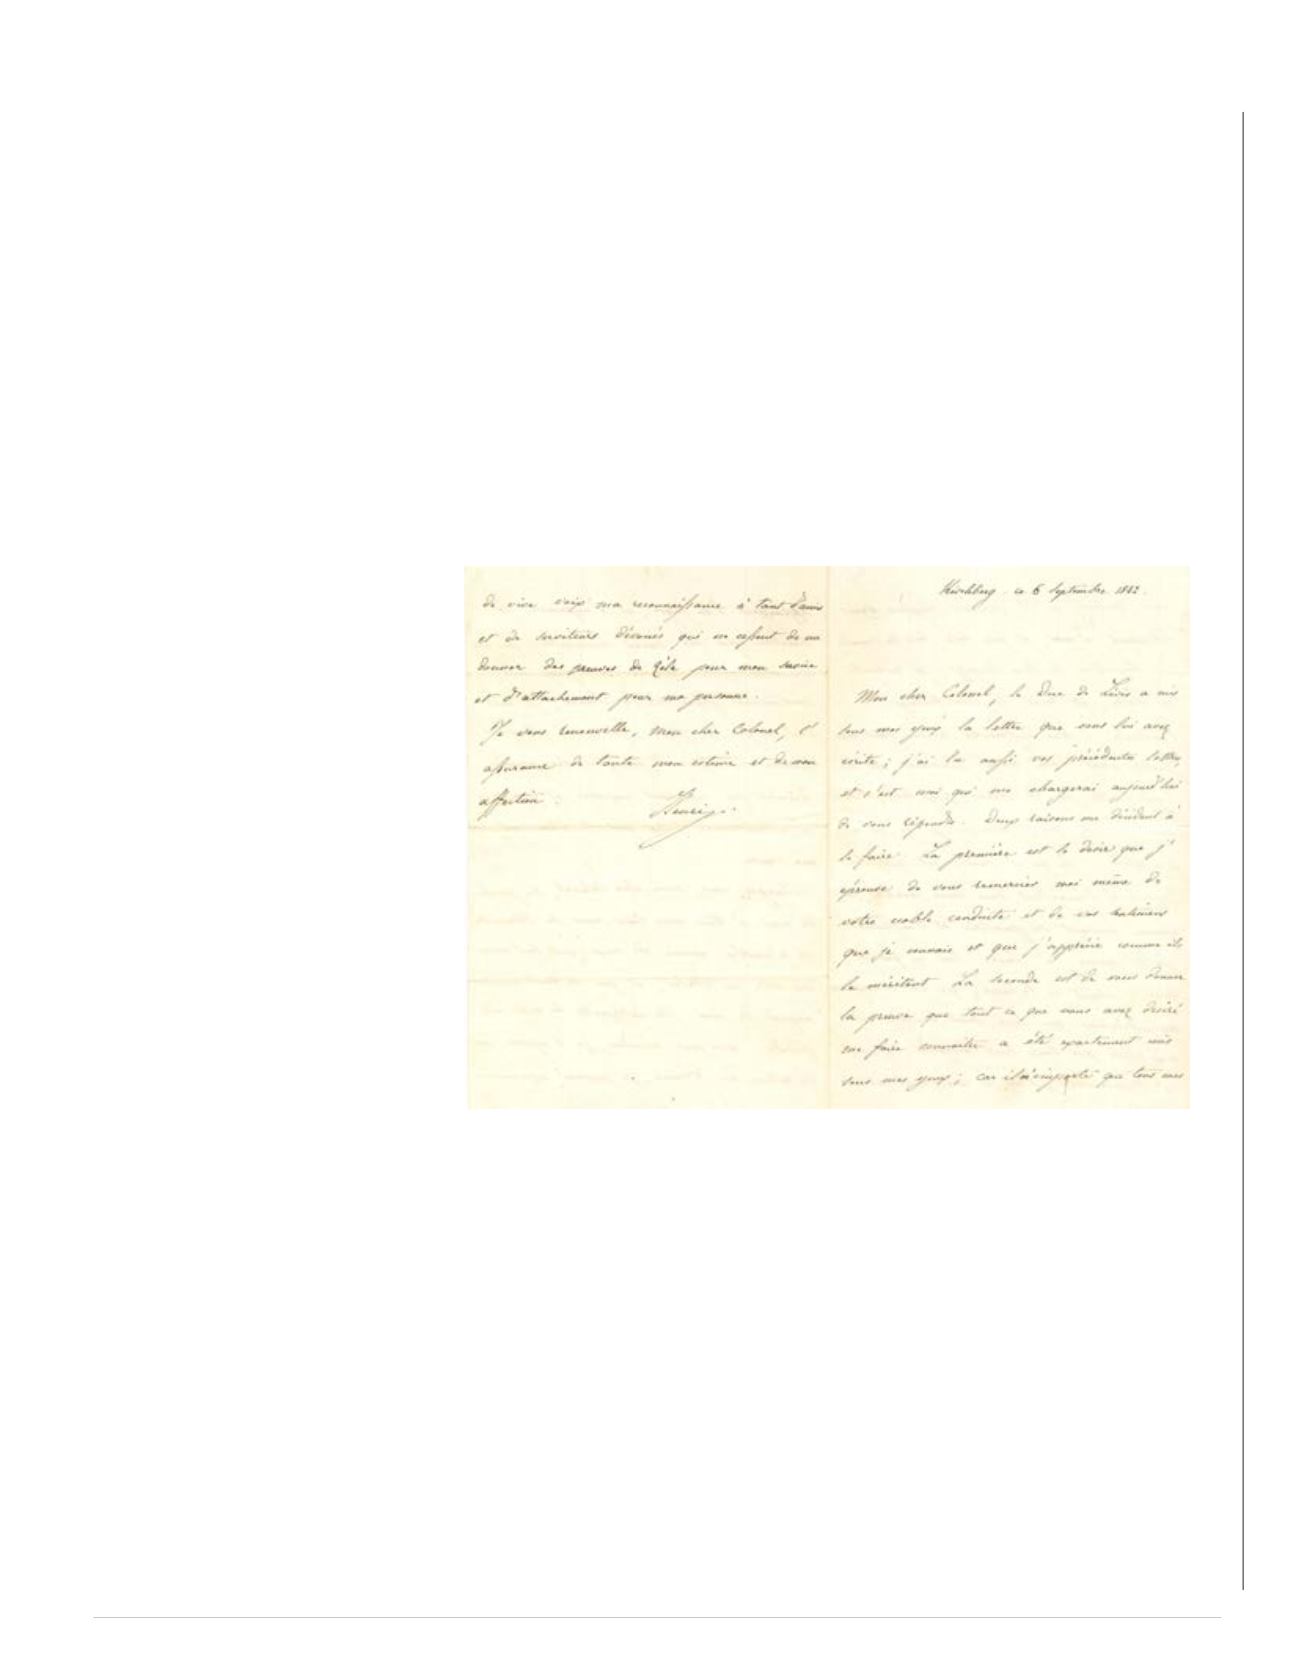 de vive voix ma reconnaissance à tant d'amis
et de serviteurs dévoués qui ne cessent de me
donner des preuves de zèle pour mon service
et d'attachement pour ma personne.
Je vous renouvelle, mon cher Colonel, l'
assurance de toute mon estime et de mon
affection.
Henri
Kirchberg ce 6 Septembre 1842.
Mon cher Colonel, le Duc de Lévis a mis
sous mes yeux la lettre que vous lui avez
écrite; j'ai lu aussi vos précédentes lettres,
et c'est moi qui me chargerai aujourd'hui
de vous répondre. Deux raisons me décident à
le faire. La première est le desir que j'
éprouve de vous remercier moi même de
votre noble conduite et de vos sentimens
que je connais et que j'apprécie comme ils
le méritent. La seconde est de vous donner
la preuve que tout ce que vous avez desiré
me faire connaitre a été exactement mis
sous mes yeux; car il m'importe que tous mes